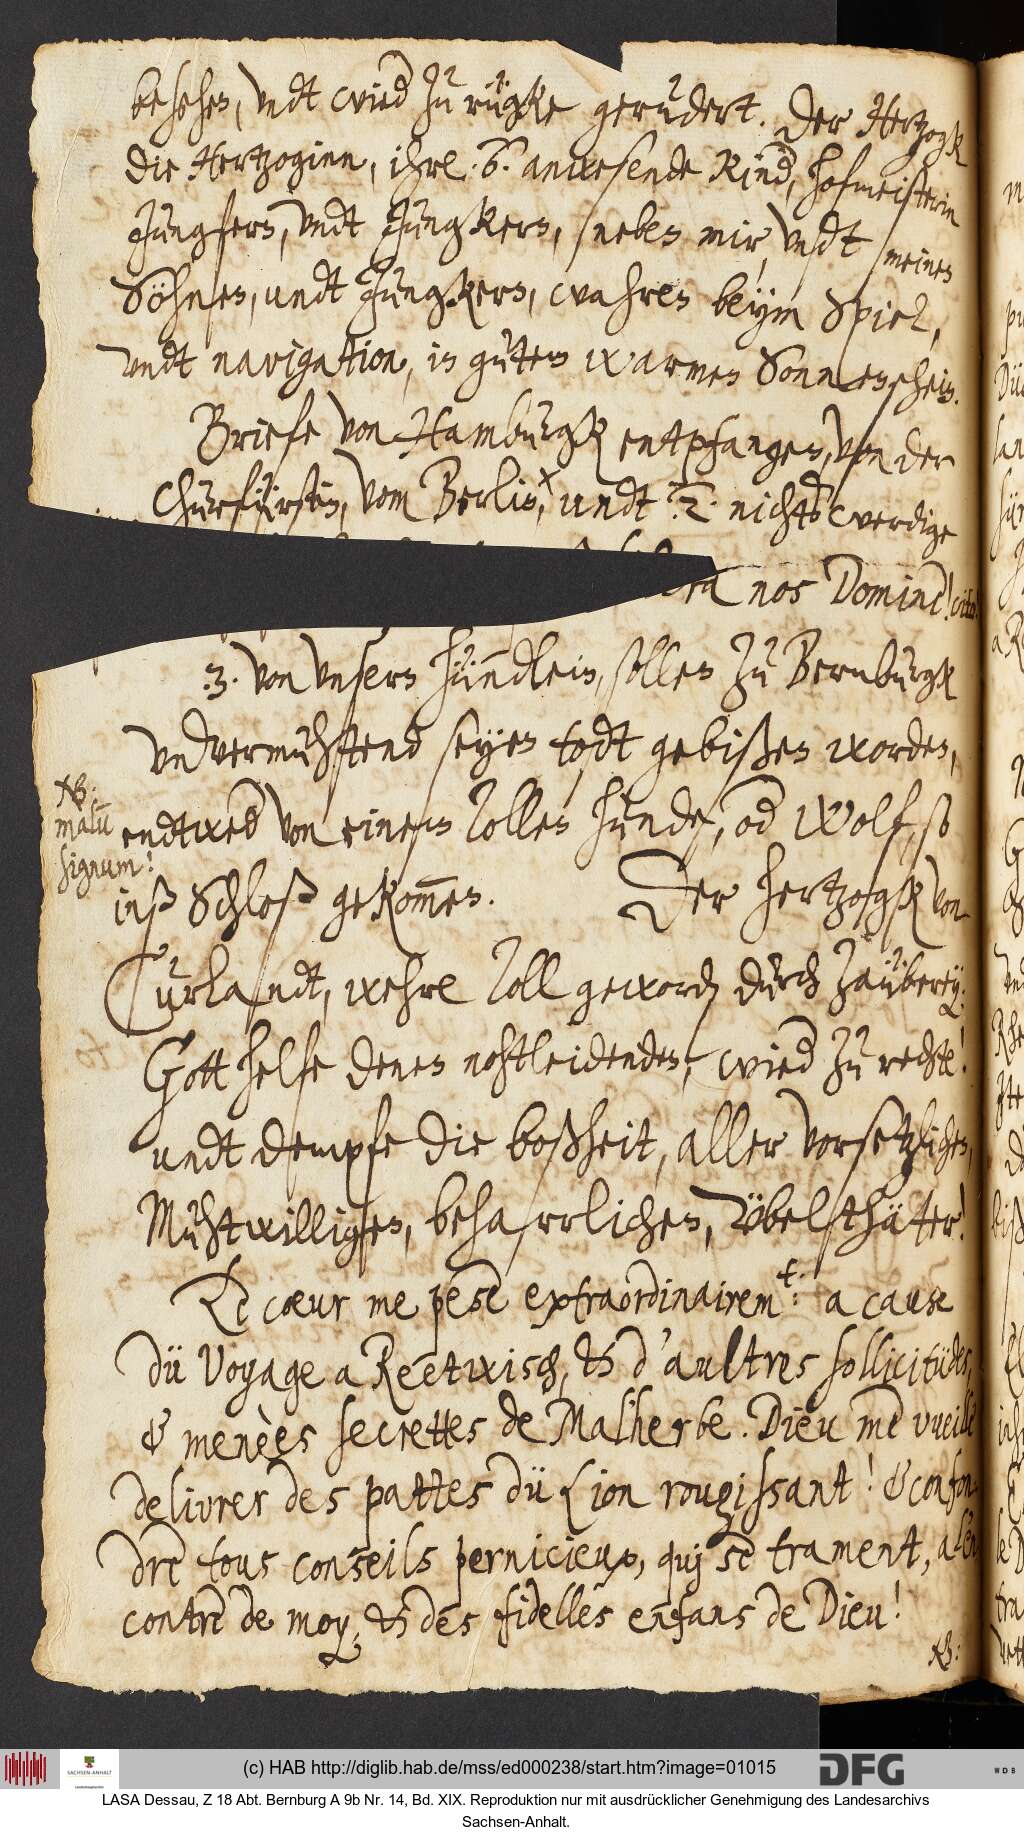 besehen, vndt wied zu rügke gerudert. Der Hertzogk
die Hertzoginn, ihre .6. anwesende Kind, hofmeisterin
Jungfern, vndt Jungkern, neben mir, vndt meinen
Söhnen, undt Jungkern, wahren beym Spiel,
vndt navigation, in gutem warmen Sonnenschein.
Briefe von Hamburgk entpfangen, von der
Churfürstin, vom Berlin, undt .2. nichtswerdige
nos Domine! cito!
.3. von vnsern hündlein, sollen zu Bernburgk
vndvermuhtend seyen todt gebißen worden,
NB:
malũ
signum!
endtwed von einem tollen hunde, od Wolf, so
inß Schloß gekom̄en. Der hertzogk von
Curlandt, wehre toll geword durch Zauberey.
Gott helfe denen nohtleidenden, wied zu rechte!
undt dempfe die boßheit, aller vorsetzlichen,
Muhtwilligen, beharrlichen, Übelthäter!
Le cœur me pese extraordinairemt: a cause
dü Voyage a Reetwisch, & d'aultres sollicitüdes,
& menèes secrettes de Malherbe. Dieu me vueille
delivrer des pattes dü Lion rougissant! & confon-
dre tous conseils pernicieux, quj se trament, a l'en
contre de moy, & des fidelles enfans de Dieu!
NB:
(c) HAB http://diglib.hab.de/mss/ed000238/start.htm?image=01015
SACHSEN-ANHALT
DFG
WDB
LASA Dessau, Z 18 Abt. Bernburg A 9b Nr. 14, Bd. XIX. Reproduktion nur mit ausdrücklicher Genehmigung des Landesarchivs
Sachsen-Anhalt.